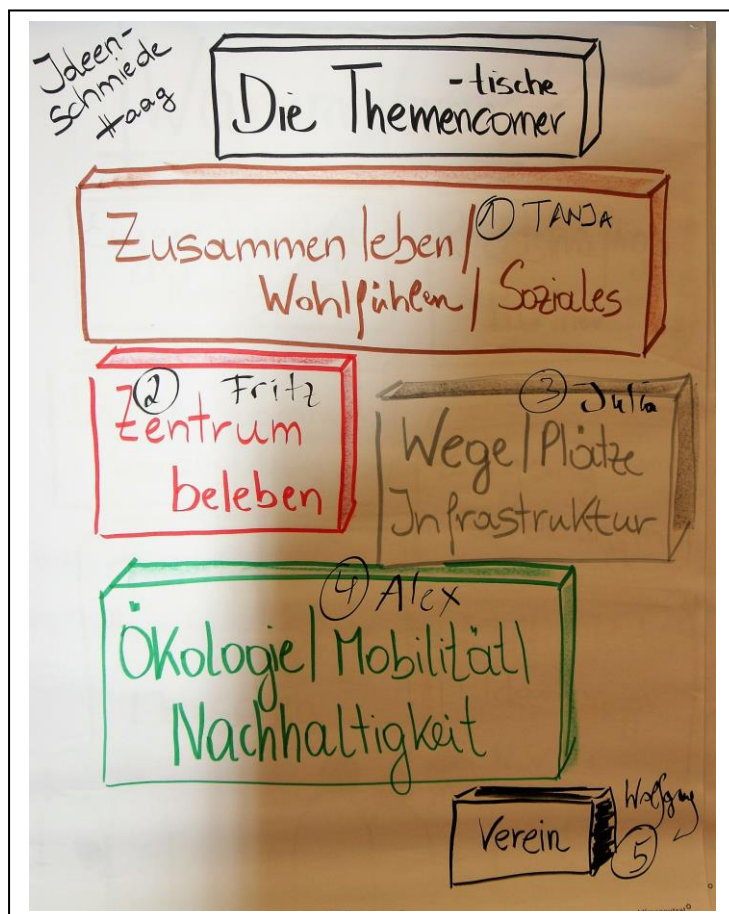 Ideen-
schmiede
Haag
-tische
Die Themencorner
① TANJA
Zusammen leben/
Wohlfühlen/ Soziales
② Fritz
Zentrum
beleben
③ Julia
Wege/Plätze
Infrastruktur
④ Alex
Ökologie/Mobilität/
Nachhaltigkeit
Wolfgang
Verein
⑤